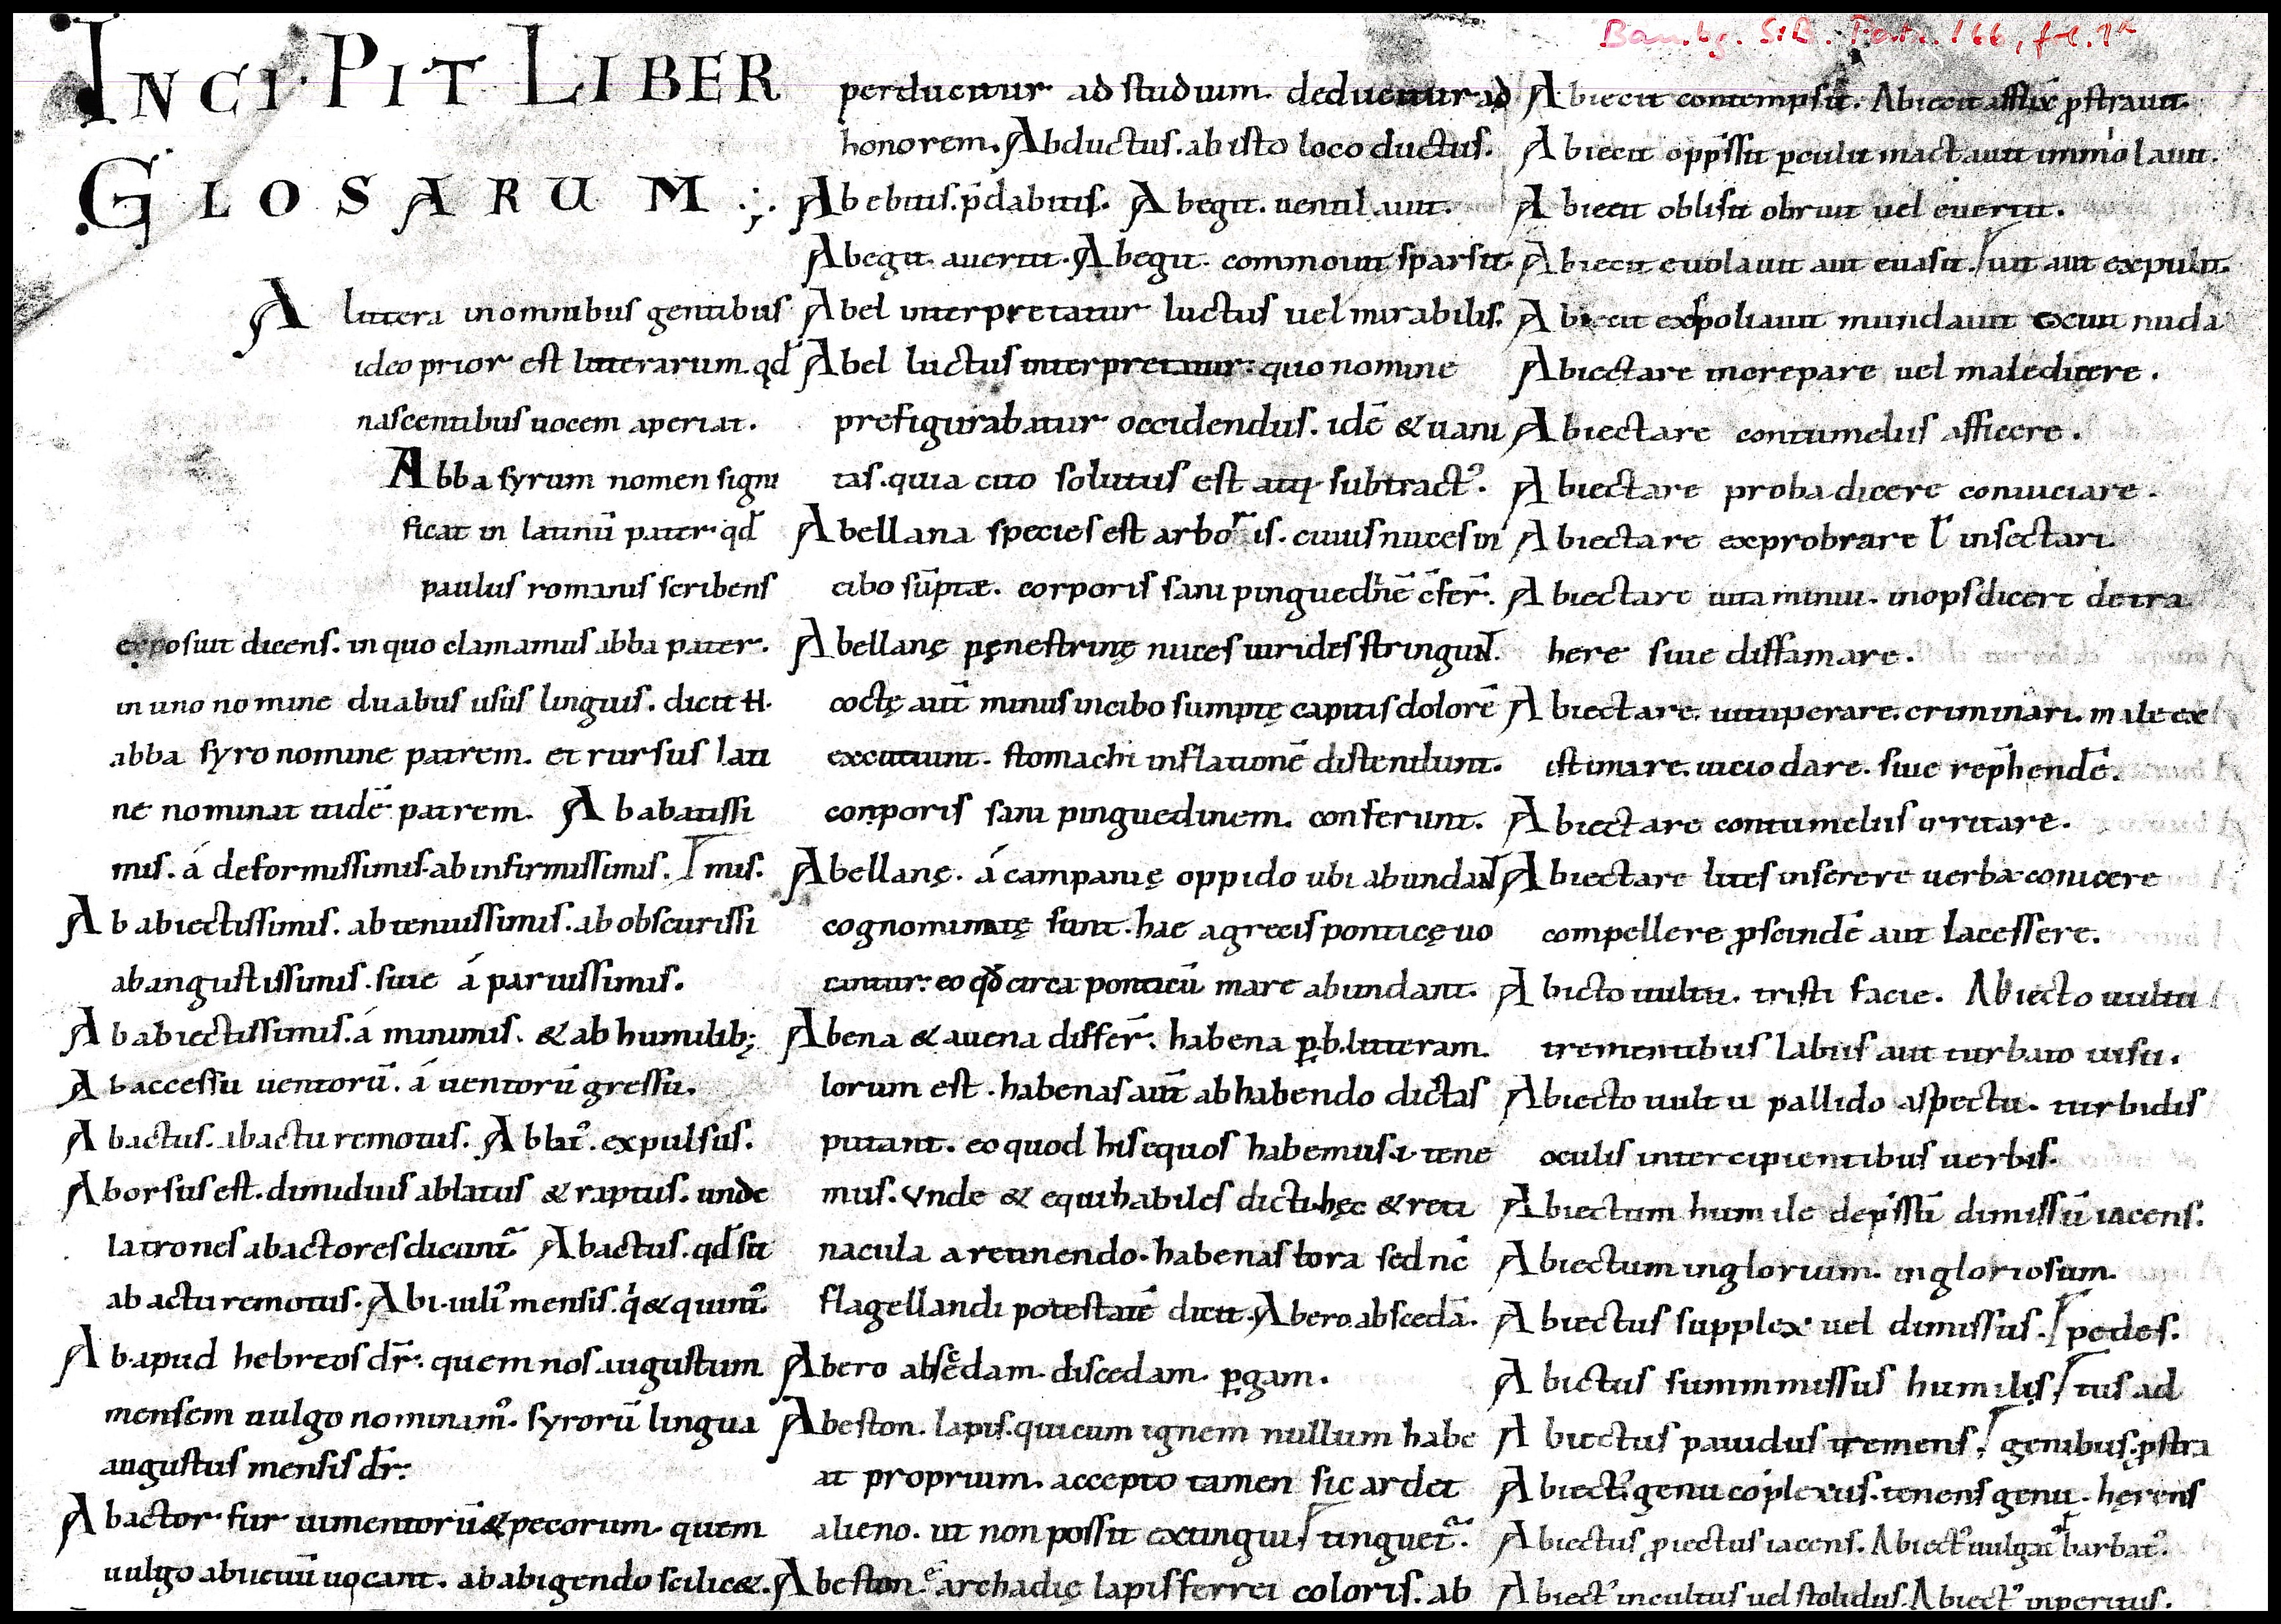 INCIPIT LIBER
GLOSARUM
A littera in omnibus gentibus
ideo prior est litterarum. qđ
nascentibus uocem aperiat.
Abba syrum nomen signi
ficat in latinū pater. qđ
paulus romanis scribens
exposuit dicens. in quo clamamus abba pater.
in uno nomine duabus usus linguis. dicit
abba syro nomine patrem. et rursus lati
ne nominat itidē patrem. Ab abatissi
mis. á deformissimis. ab infirmissimis. mis.
Ab abiectissimis. ab tenuissimis. ab obscurissi
ab angustissimis. siue á paruissimis.
Ab abiectissimis. á minimis. & ab humilib;
Ab accessu uentorū. á uentorū gressu.
Abactus. abactu remotus. Ablat᾿. expulsus.
Aborsus est. dimidius ablatus & raptus. unde
latrones abactores dicunt̃ Abactus. qđ sit
ab actu remotus. Abi. mensis. q &
Ab. apud hebreos dr̄. quem nos augustum
mensem uulgo nominam᾿. syrorū lingua
augustus mensis dr̄.
Abactor. fur iumentorū & pecorum. quem
uulgo uocant. ab abigendo scilic&.
perducitur ad studium. deducitur ad
honorem. Abductus. ab isto loco ductus.
Abebitis. p̄dabitis. Abegit. uentilauit.
Abegit. auertit. Abegit. commouit sparsit.
Abel interpretatur luctus uel mirabilis.
Abel luctus interpretatur. quo nomine
prefigurabatur occidendus. idē & uani
tas. quia cito solutus est atq; subtract᾿.
Abellana species est arboris. cuius nuces in
cibo sūptæ. corporis sani pinguedinē c̄fer̄.
Abellanę pęnestrinę nuces uirides stringunt.
coctę aut̄ minus in cibo sumptę capitis dolorē
excutiunt. stomachi inflationē distendunt.
conporis sani pinguedinem. conferunt.
Abellanę. á campanię oppido ubi abundant
cognominatę sunt. hae a grecis ponticę uo
cantur: eo qđ circa ponticū mare abundant.
Abena & auena differ̄. habena p̲.b. litteram.
lorum est. habenas aut̄ ab habendo dictas
putant. eo quod his equos habemus .i. tene
mus. Vnde & equi habiles dicti. hęc & reti
nacula a retinendo. habenas lora sed nc̄
flagellandi potestatē dicit. Abero. abscedā.
Abero abscedam. discedam. p̲gam.
Abeston. lapis. qui cum ignem nullum habe
at proprium. accepto tamen sic ardet
alieno. ut non possit extingui tinguet̃.
Abeston archadię lapis ferrei coloris. ab
Bambg. StB. Patr. 166, fol. 1r
Abiecit contempsit. Abiecit afflix̄ ꝓstrauit.
Abiecit opp̄ssit p̲culit mactauit immolauit.
Abiecit oblisit obruit uel euertit.
Abiecit euolauit aut euasit. uit aut expulit.
Abiecit exspoliauit mundauit exuit nuda
Abiectare increpare uel maledicere.
Abiectare contumeliis afficere.
Abiectare proba dicere conuiciare.
Abiectare exprobrare ł insectari.
Abiectare uitaminiu. inops dicere detra
here siue diffamare.
Abiectare. uituperare. criminari. male ex
istimare. uicio dare. siue rep̄hendē.
Abiectare contumeliis irritare.
Abiectare lites inserere uerba conicere
compellere ꝓscindē aut lacessere.
Abiecto uultu. tristi facie. Abiecto uultu
trementibus labiis aut turbato uisu.
Abiecto uultu pallido aspectu. turbidis
oculis intercipientibus uerbis.
Abiectum humile dep̄ssū dimissū iacens.
Abiectum inglorium. ingloriosum.
Abiectus supplex uel dimissus. pedes.
Abiectus summmissus humilis tus ad
Abiectus pauidus tremens. genibus. ꝓstra
Abiect᾿ genu cōplexus. tenens genu. hęrens
Abiectus ꝓiectus iacens. Abiect᾿ uulgat᾿ barbar᾿.
Abiect᾿ incultus uel stolidus. Abiect᾿ inperitus.